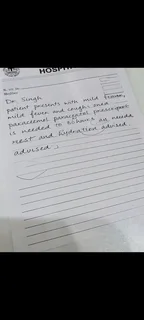 HOSPIT
Dr. Singh
patient presents with mild fever,
mild fever and cough. once
paracetamol paracetol prescript
is needed to 6 hours as needed
rest and hydration advised
advised.